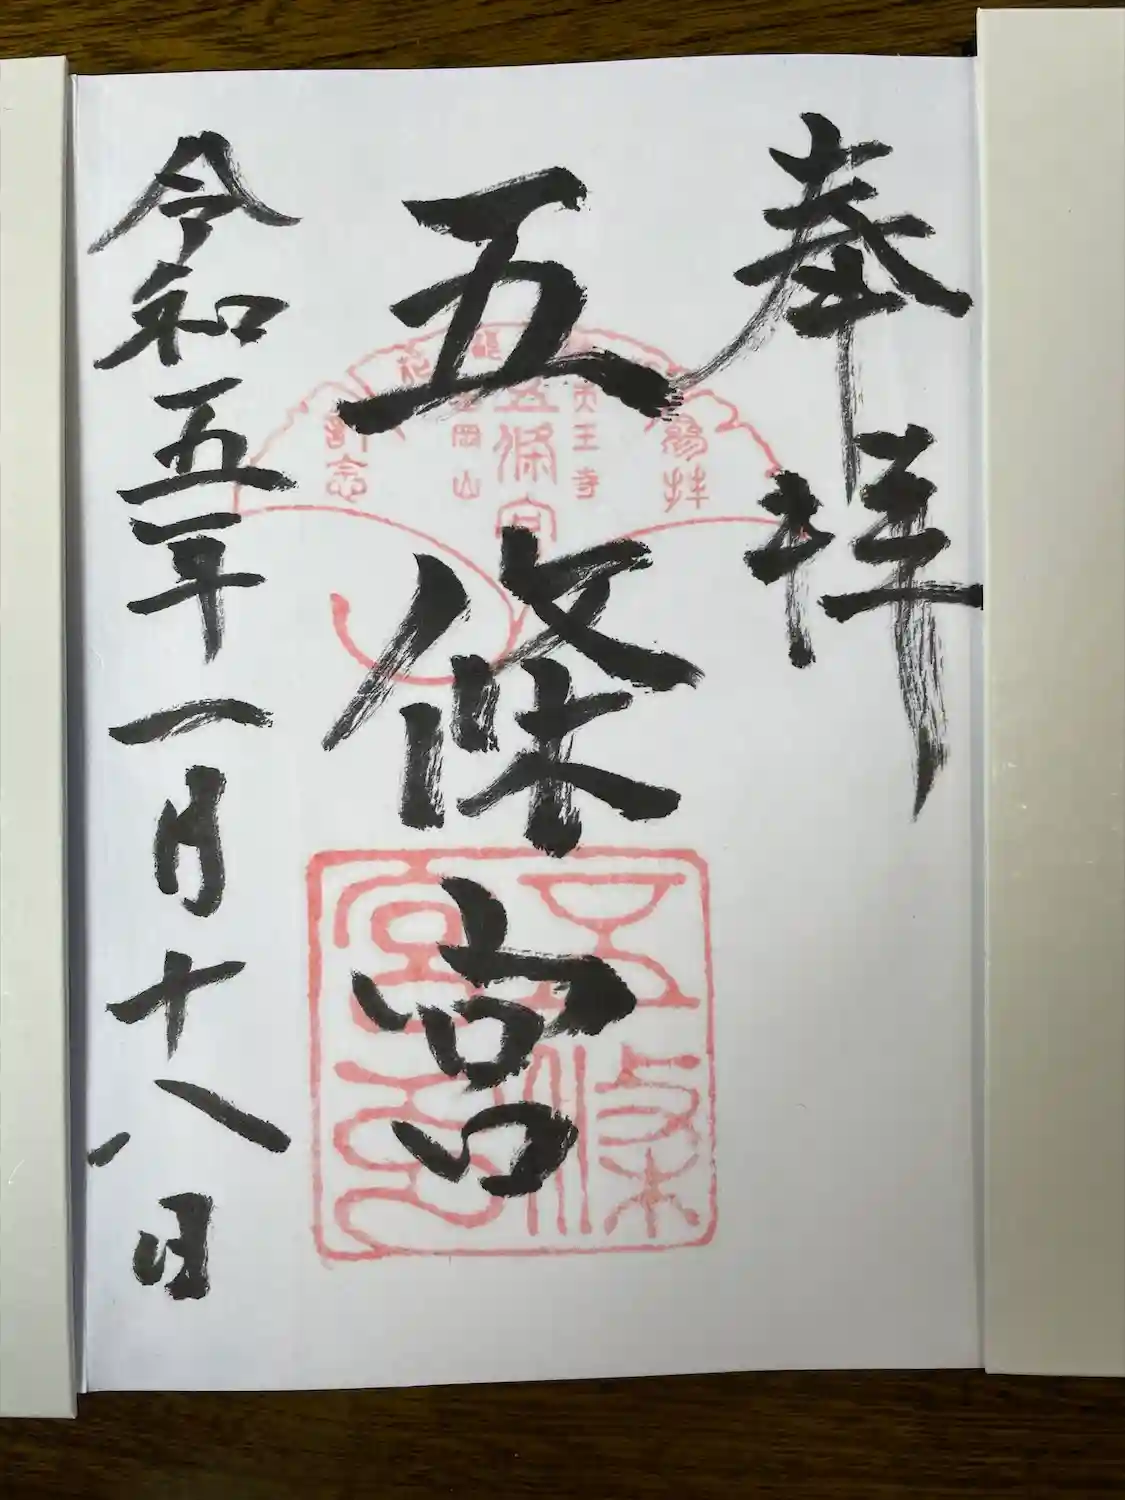 奉拝
五條宮
令和五年一月十八日
五條宮
岡山
王寺
拝
記念
五條宮